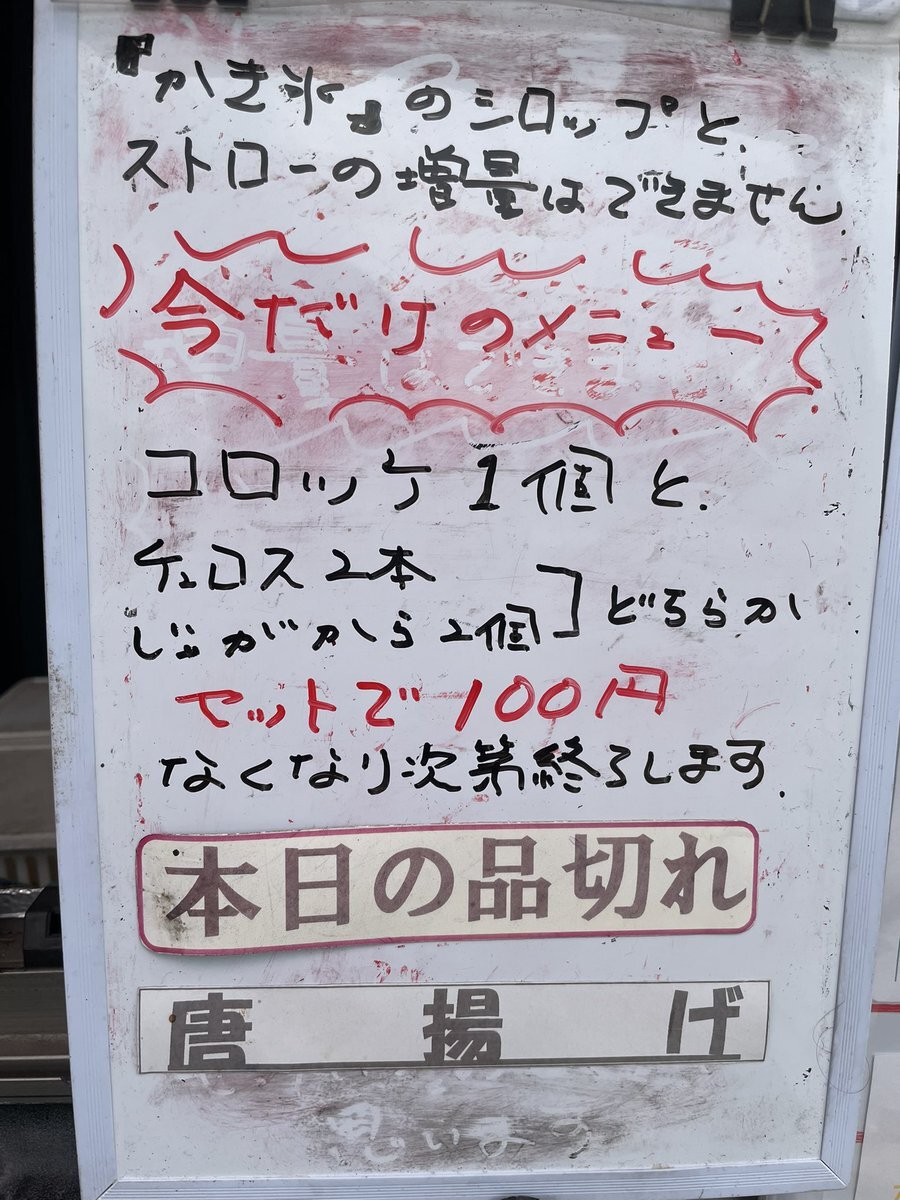 『かき氷』のシロップと、
ストローの増量はできません
今だけのメニュー
コロッケ1個と、
チュロス2本
じゃがから2個
どちらか
セットで100円
なくなり次第終了します
本日の品切れ
唐揚げ
思います